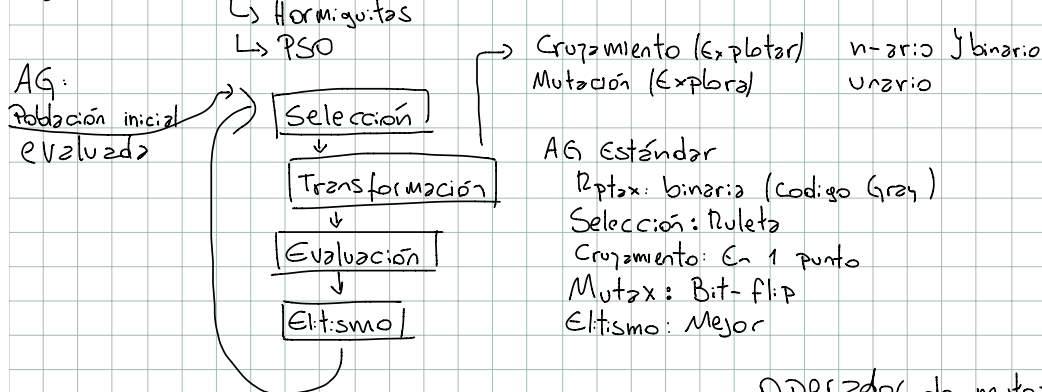 ↳ Hormiguitas
↳ PSO
AG:
Población inicial
evaluada
Selección
Transformación
Evaluación
Elitismo
Cruzamiento (Explotar) n-ario } binario
Mutación (Explora) unario
AG Estándar
Rptax: binaria (Codigo Gray)
Selección: Ruleta
Cruzamiento: En 1 punto
Mutax: Bit-flip
Elitismo: Mejor